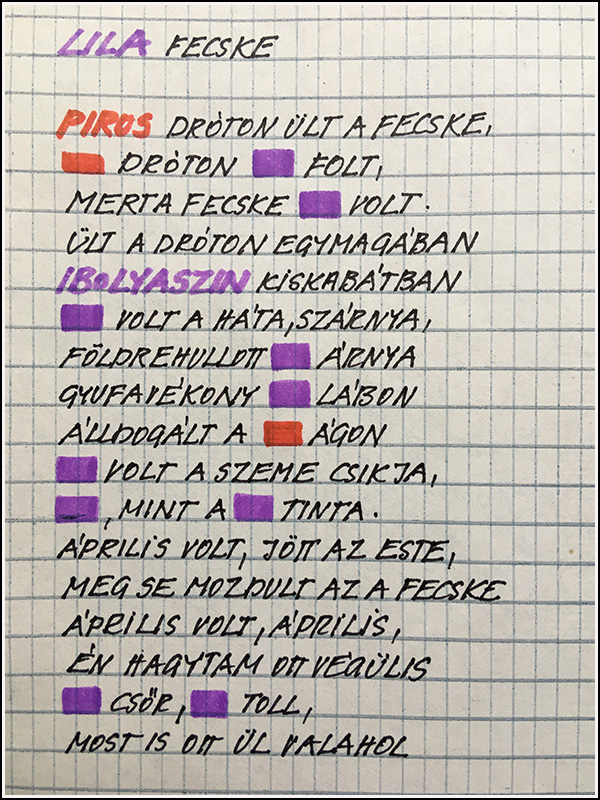 LILA FECSKE
PIROS DRÓTON ÜLT A FECSKE,
DRÓTON FOLT,
MERT A FECSKE VOLT.
ÜLT A DRÓTON EGYMAGÁBAN
IBOLYASZIN KISKABÁTBAN
VOLT A HÁTA, SZÁRNYA,
FÖLDREHULLOTT ÁRNYA
GYUFAVÉKONY LÁBON
ÁLLDOGÁLT A ÁGON
VOLT A SZEME CSIKJA,
, MINT A TINTA.
ÁPRILIS VOLT, JÖTT AZ ESTE,
MEG SE MOZDULT AZ A FECSKE
ÁPRILIS VOLT, ÁPRILIS,
ÉN HAGYTAM OTT VÉGÜLIS
CSŐR, TOLL,
MOST IS OTT ÜL VALAHOL